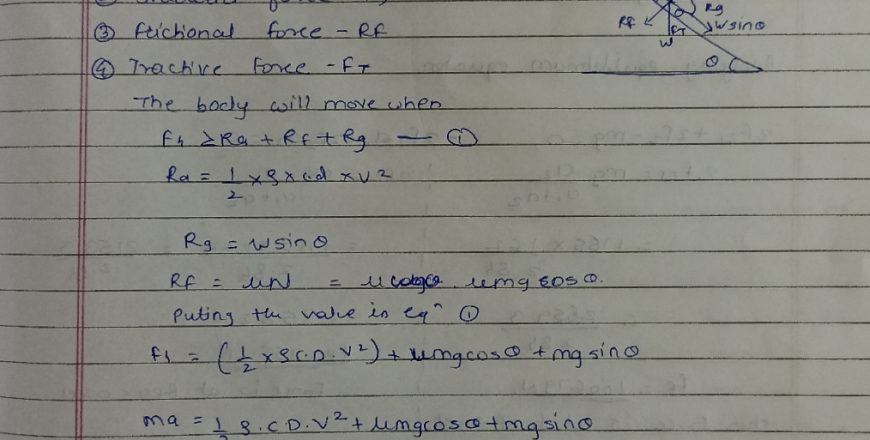 Rg
Rf
W sinθ
FT
W
θ
③ frictional force - RF
④ Tractive Force - FT
The body will move when
Ft ≥ Ra + Rf + Rg — ①
Ra = 1/2 × ρ × c.d × v²
Rg = W sin θ
RF = μN = μmg cos θ.
Puting the value in eqⁿ ①
Ft = (1/2 × ρ C.D. V²) + μmg cos θ + mg sin θ
ma = 1/2 ρ. C D. V² + μmg cos θ + mg sin θ